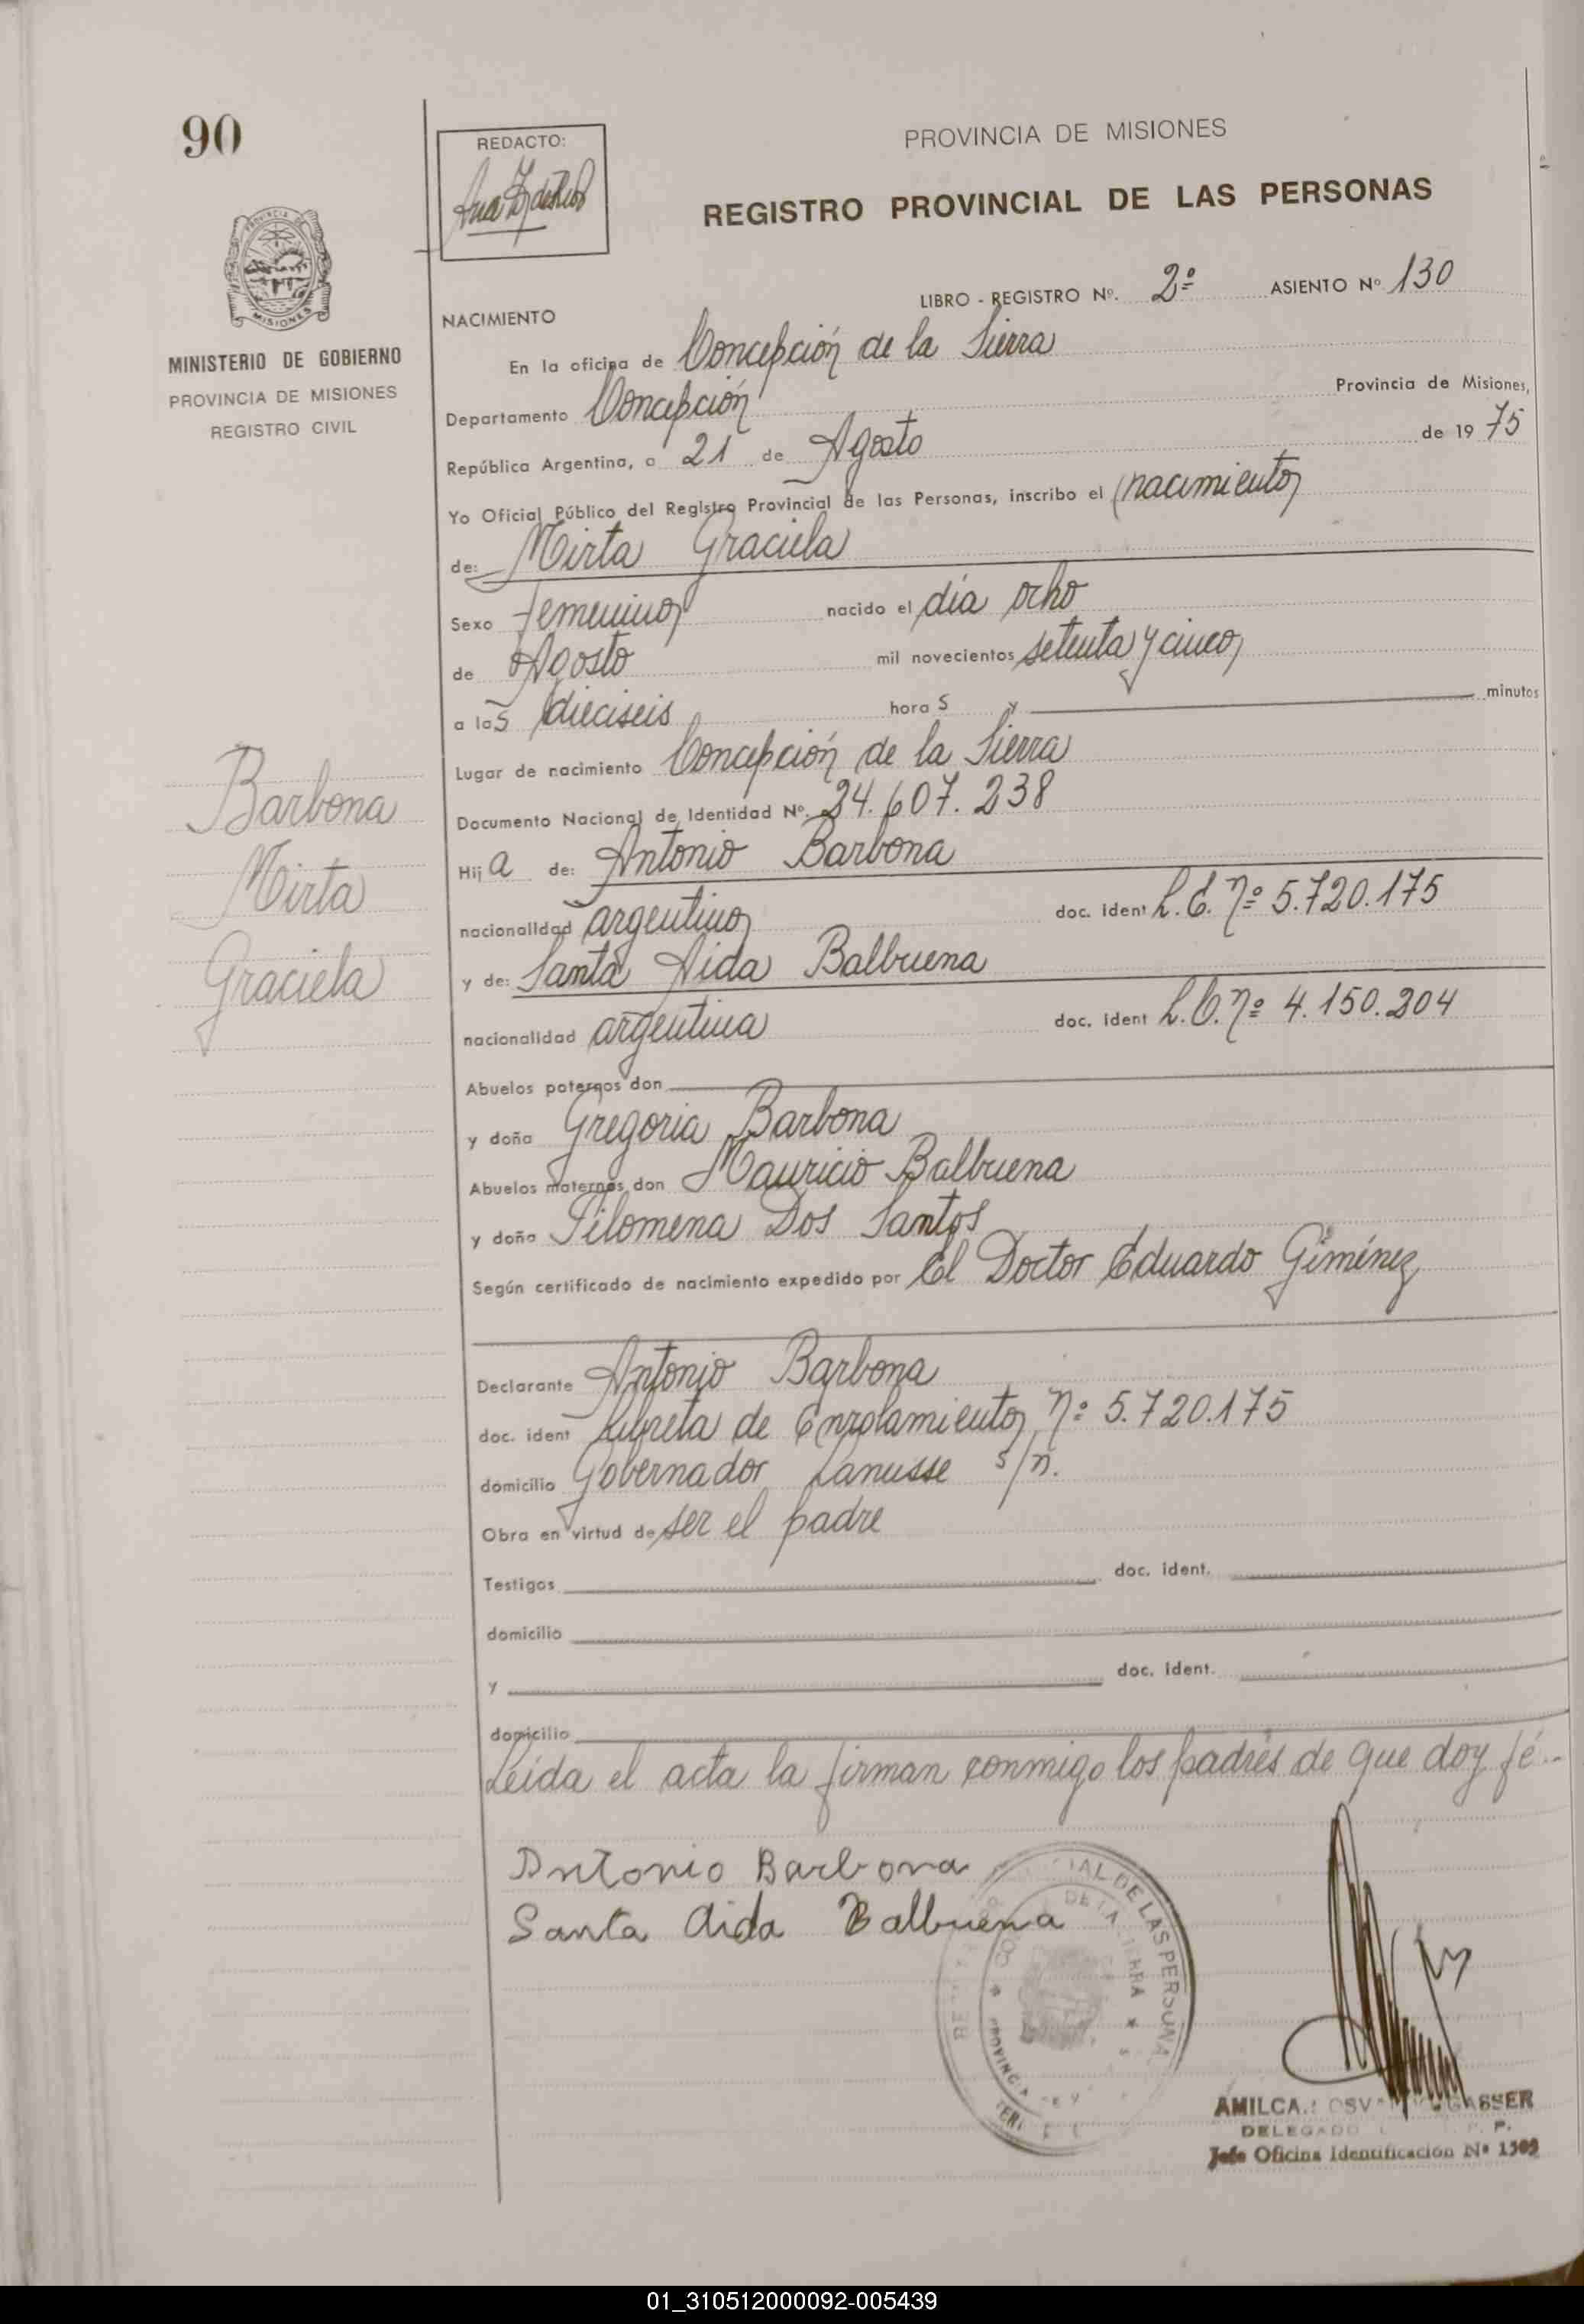 90
REDACTO:
PROVINCIA DE MISIONES
REGISTRO PROVINCIAL DE LAS PERSONAS
MISIONES
MINISTERIO DE GOBIERNO
PROVINCIA DE MISIONES
REGISTRO CIVIL
LIBRO - REGISTRO Nº. 2º ASIENTO Nº 130
NACIMIENTO
En la oficina de Concepción de la Sierra
Departamento Concepción Provincia de Misiones,
República Argentina, a 21 de Agosto de 1975
Yo Oficial Público del Registro Provincial de las Personas, inscribo el nacimiento
de: Mirta Graciela
Sexo femenino nacido el día ocho
de Agosto mil novecientos setenta y cinco
a las dieciseis horas y minutos
Lugar de nacimiento Concepción de la Sierra
Documento Nacional de Identidad Nº. 24.607.238
Hija de: Antonio Barbona
nacionalidad argentino doc. ident L.E. nº 5.720.175
y de: Santa Aida Balbuena
nacionalidad argentina doc. ident L.C. nº 4.150.204
Abuelos paternos don
y doña Gregoria Barbona
Abuelos maternos don Mauricio Balbuena
y doña Filomena Dos Santos
Según certificado de nacimiento expedido por El Doctor Eduardo Giménez
Declarante Antonio Barbona
doc. ident Libreta de Enrolamiento nº 5.720.175
domicilio Gobernador Lanusse s/n.
Obra en virtud de ser el padre
Testigos doc. ident.
domicilio
y doc. ident.
domicilio
Leída el acta la firman conmigo los padres de que doy fé.-
Barbona
Mirta
Graciela
Antonio Barbona
Santa Aida Balbuena
DE LAS PERSONA
PROVINCIA
GASSER
DELEGADO
Jefe Oficina Identificación Nº 1309
01_310512000092-005439